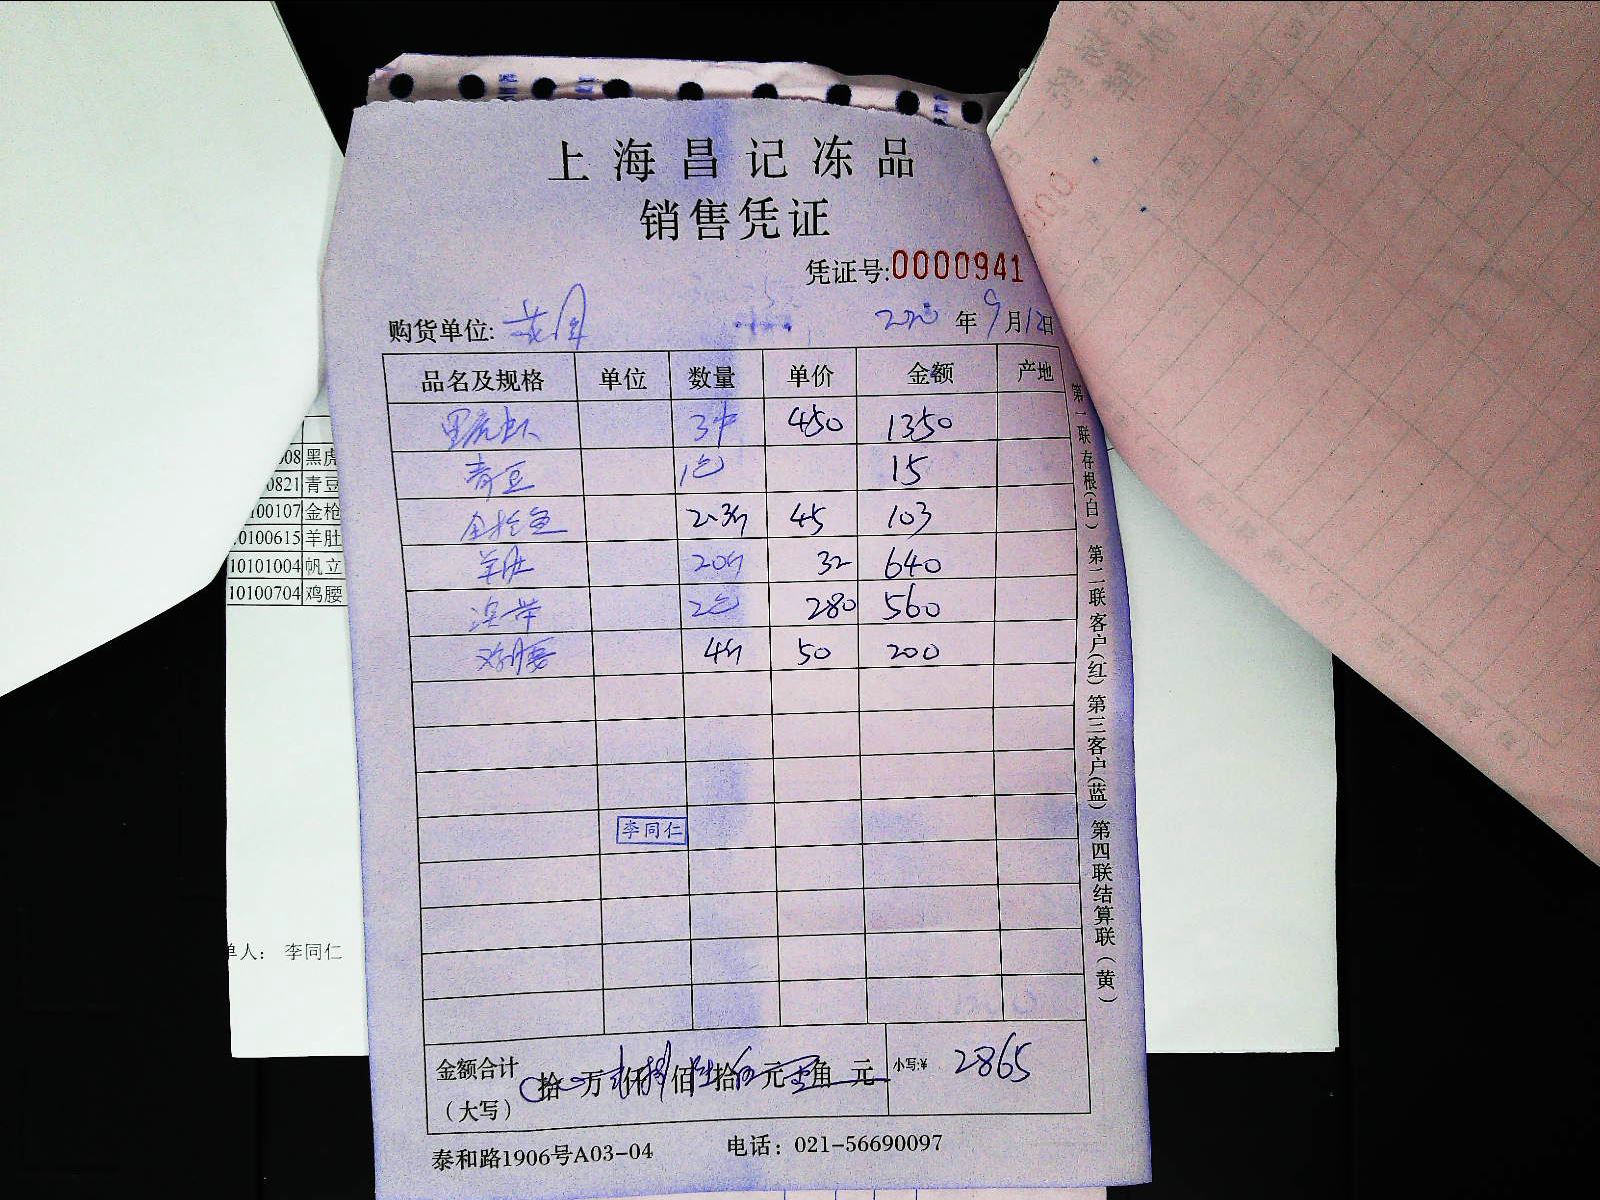 上海昌记冻品
销售凭证
凭证号:0000941
购货单位: 年9月12日
品名及规格 单位 数量 单价 金额 产地
黑虎虾 3件 450 1350
青豆 1包 15
金枪鱼 2.3斤 45 103
羊肚 20斤 32 640
2包 280 560
鸡腰 4斤 50 200
李同仁
金额合计
(大写)
拾 万 仟 佰 拾 元 角 元 小写:¥ 2865
泰和路1906号A03-04 电话: 021-56690097
第一联存根(白) 第二联客户(红) 第三客户(蓝) 第四联结算联(黄)
08 黑虎
0821 青豆
100107 金枪
0100615 羊肚
10101004 帆立
10100704 鸡腰
单人: 李同仁